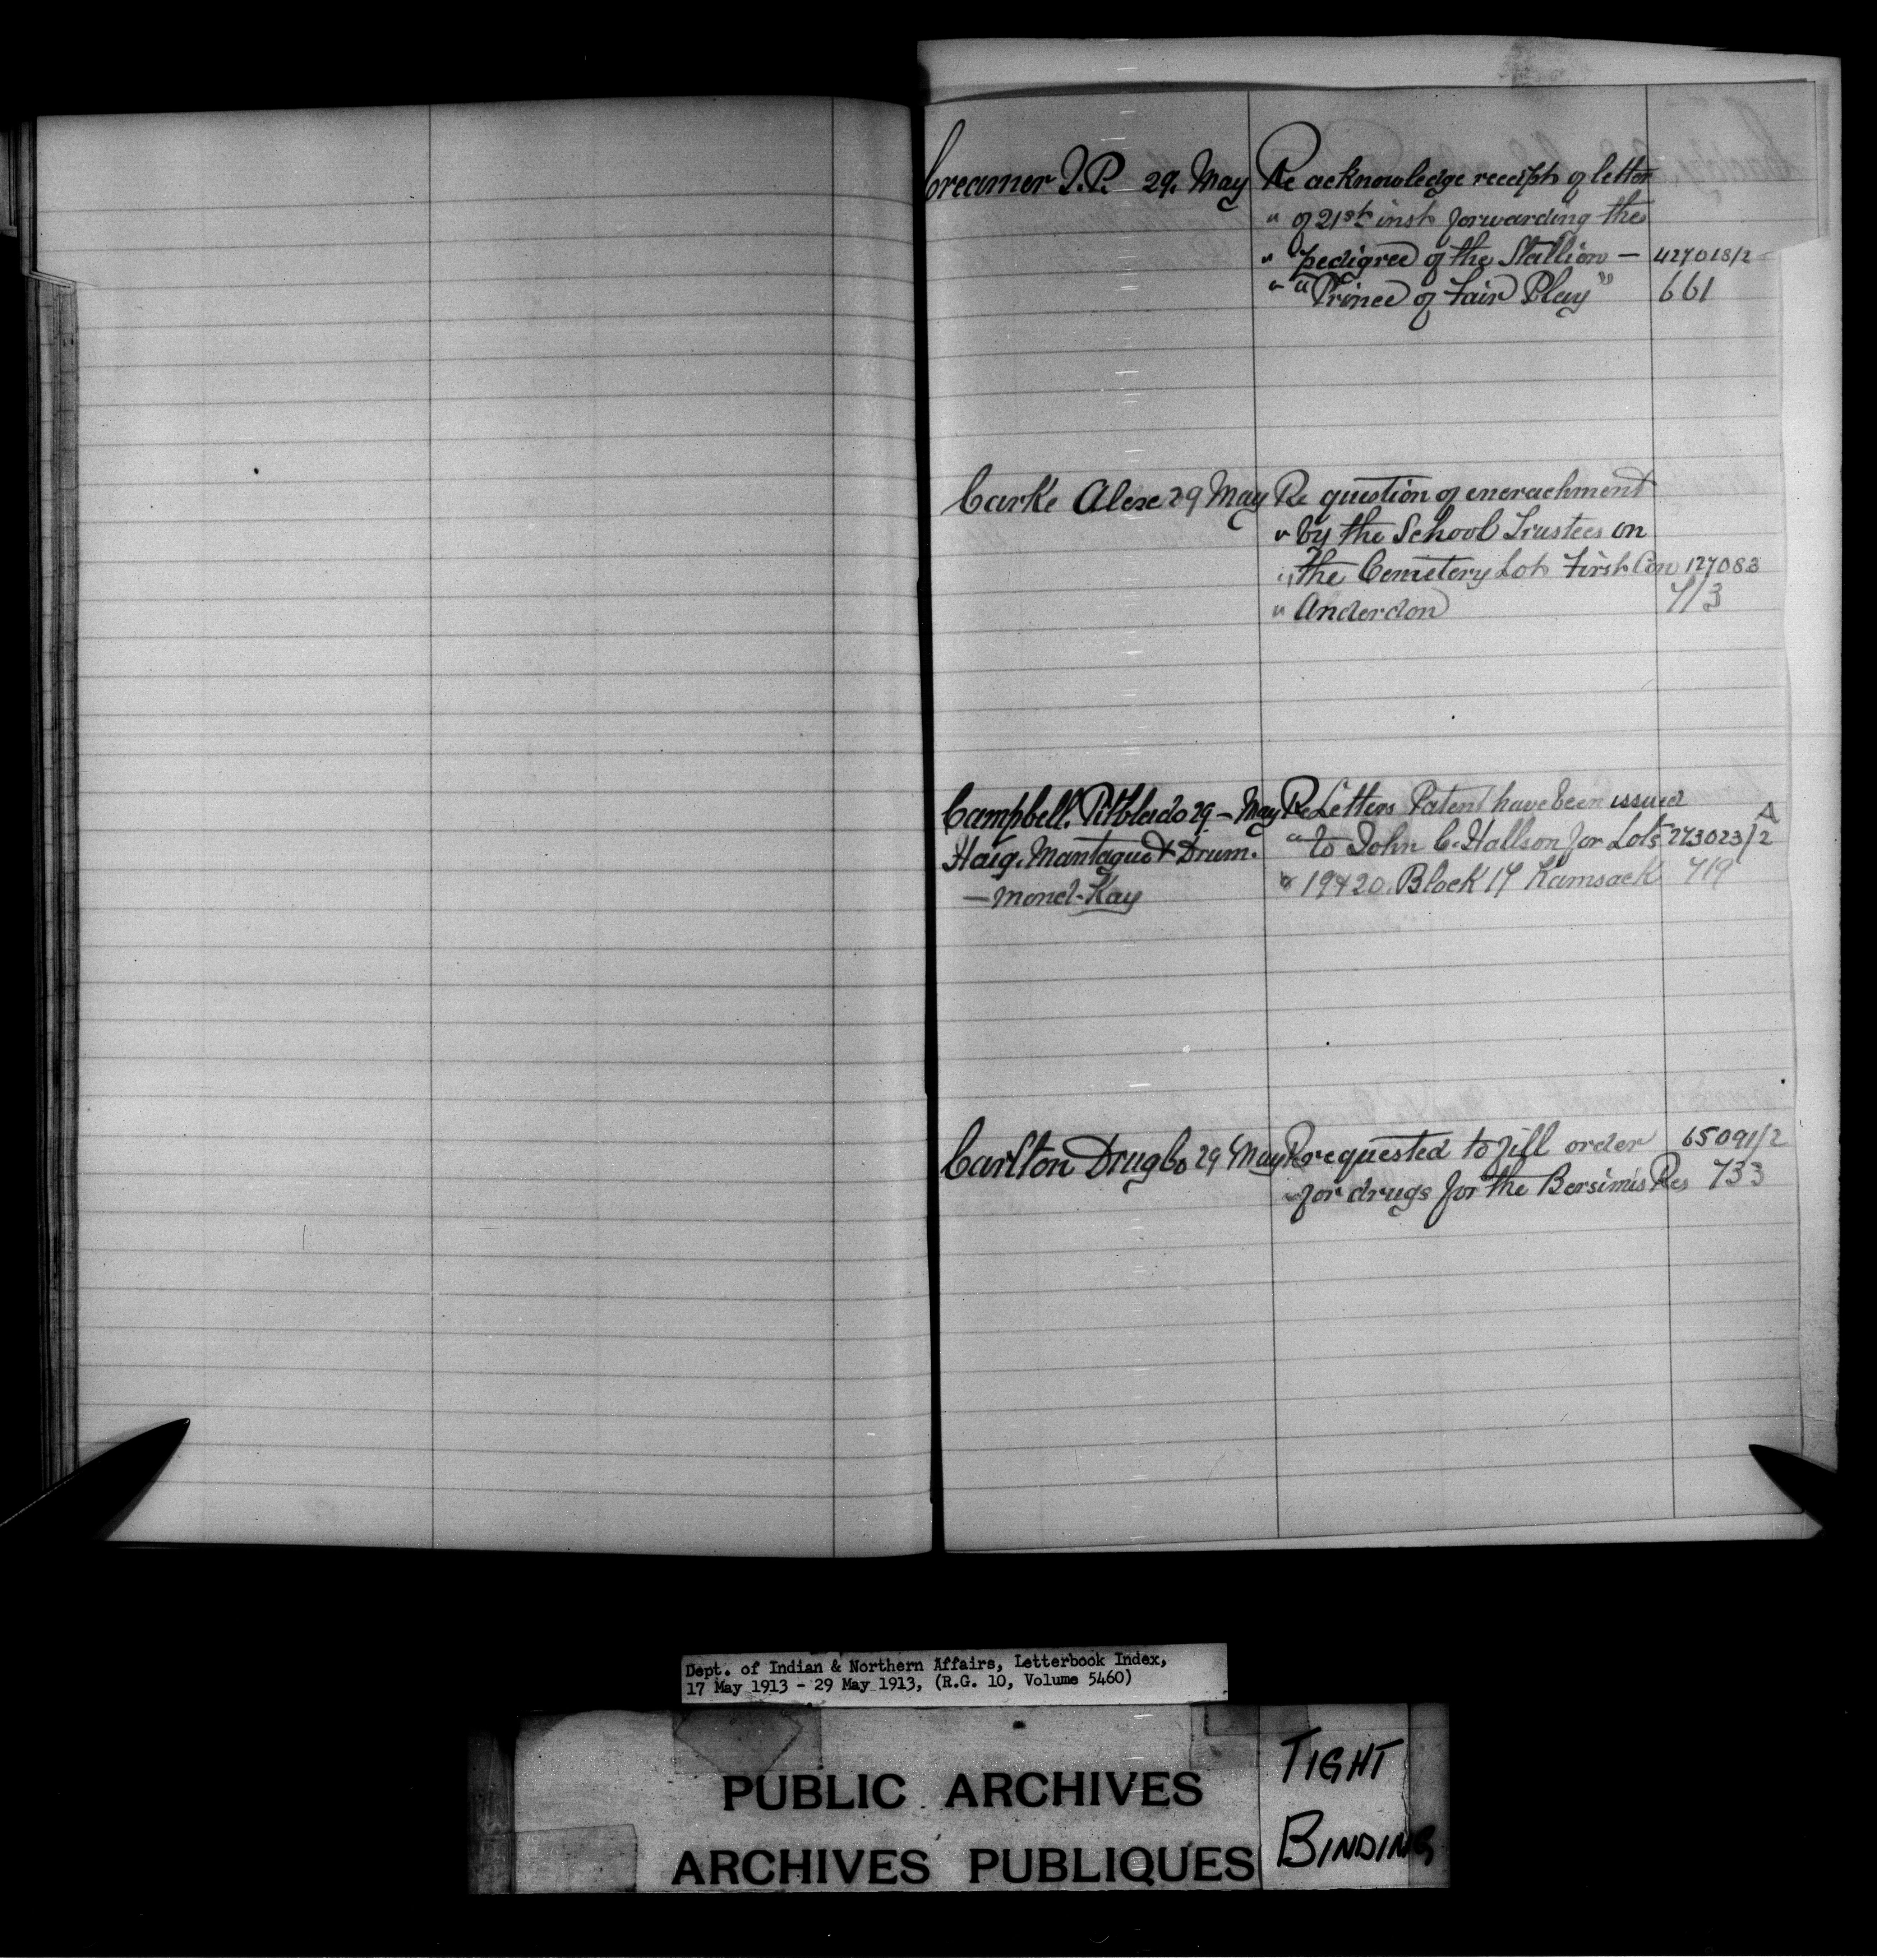 Creamer J.P. 29. May Re acknowledge receipt of letter
" of 21st inst forwarding the
" pedigree of the Stallion — 427018/2
" "Prince of Fair Play" 661
Carke Alex 29 May Re question of encrachment
" by the School Trustees on
" the Cemetery Lot First Con 127083
" Anderdon 713
Campbell. Pitblado 29 – May Re Letters Patent have been issued A
Haig. Mantague & Drum. " to John C. Hallson for Lots 273023/2
— mond. Kay " 19 & 20. Block 17 Kamsack 719
Carlton Drug Co 29 May Re requested to fill order 65091/2
" for drugs for the Bersimis Res 733
Dept. of Indian & Northern Affairs, Letterbook Index,
17 May 1913 - 29 May 1913, (R.G. 10, Volume 5460)
PUBLIC ARCHIVES
ARCHIVES PUBLIQUES
TIGHT
BINDING